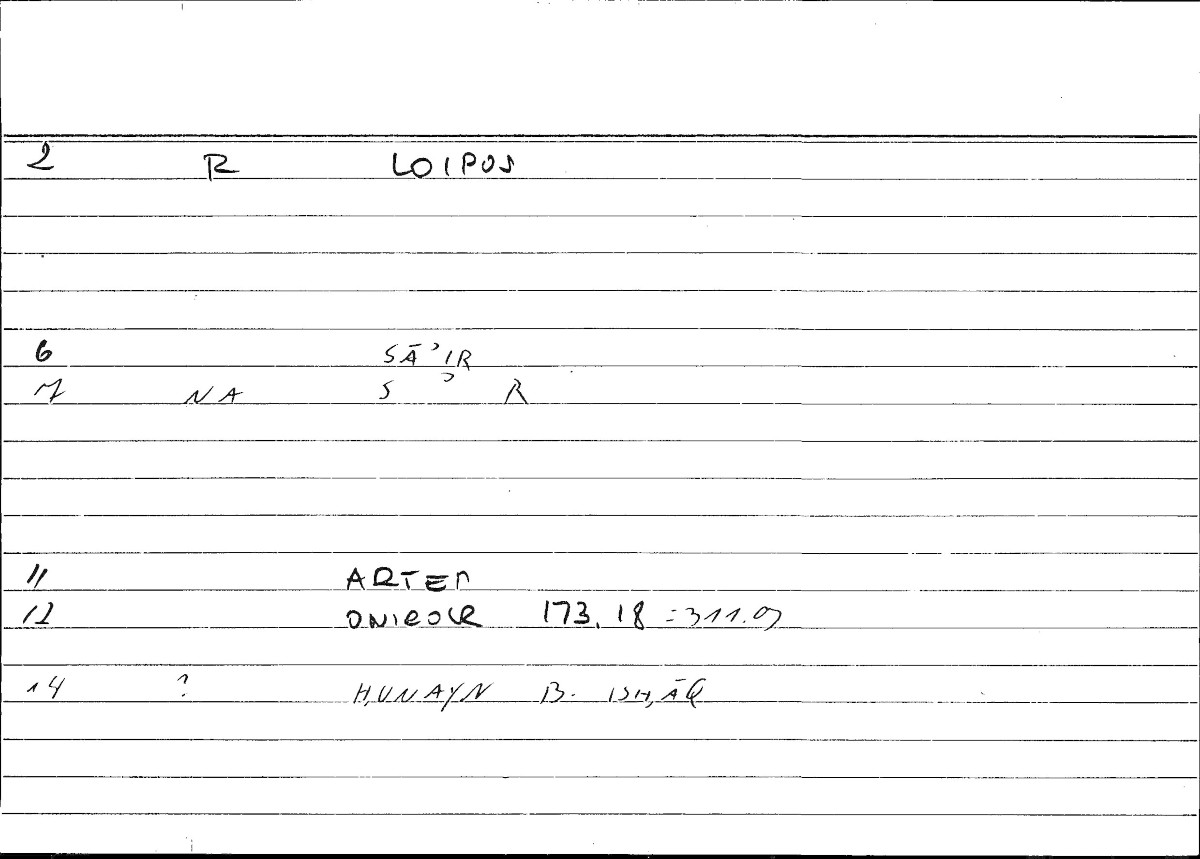 2 R LOIPOS
6 SĀʾIR
7 NA S ʾ R
11 ARTEM
12 ONIROCR 173.18 = 311.9
14 ? ḤUNAYN B. ISḤĀQ